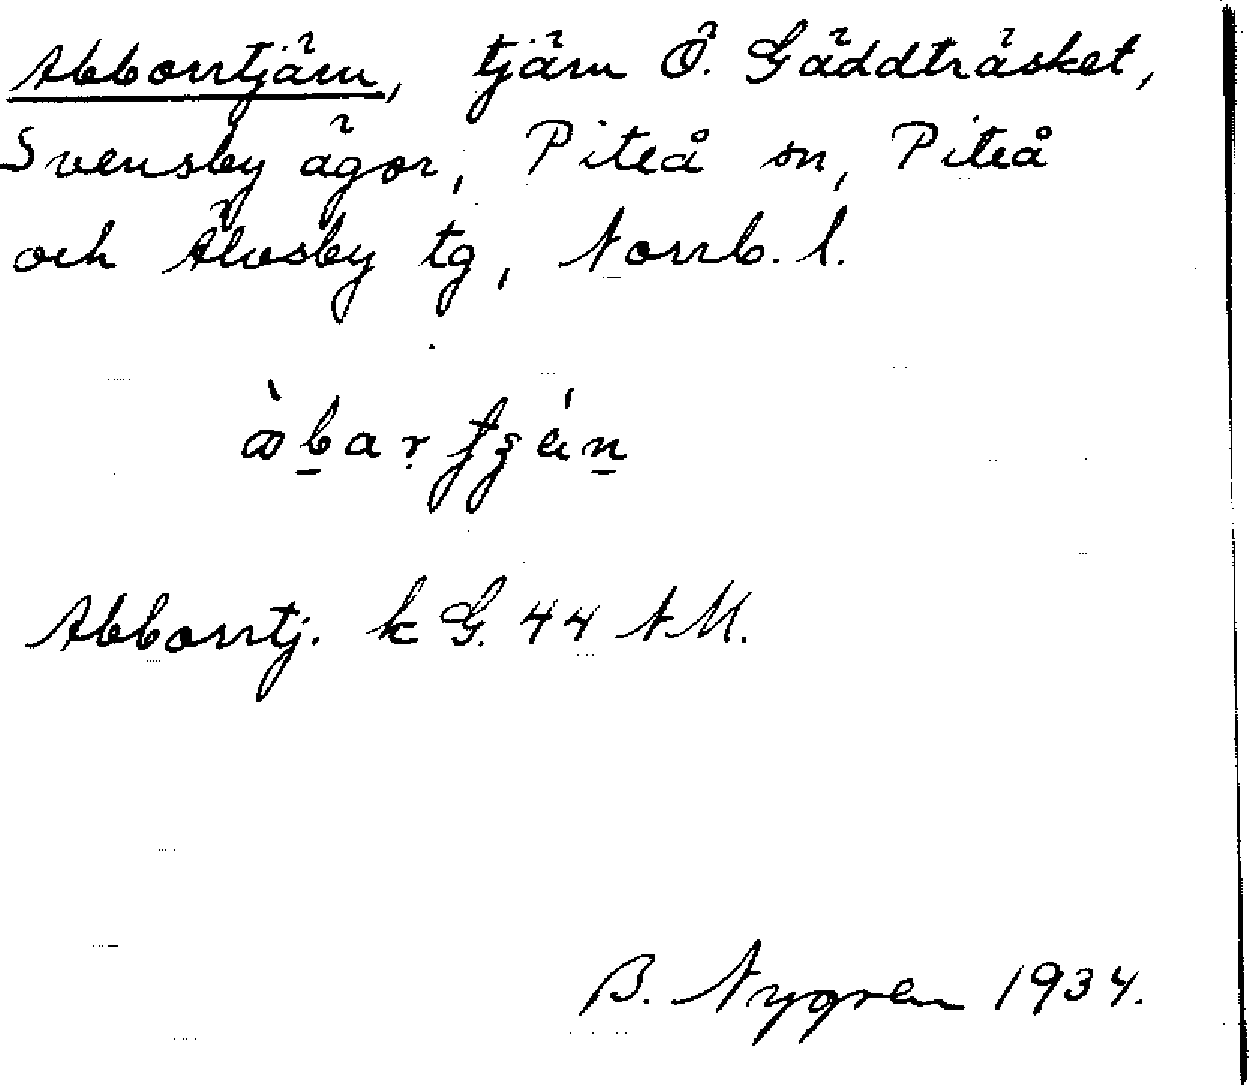 Abborrtjärn, tjärn Ö. Gäddträsket,
Svensby ägor, Piteå sn, Piteå
och Älvsby tg, Norrb. l.
Abborrtj. k G. 44 NM.
B. Nygren 1934.